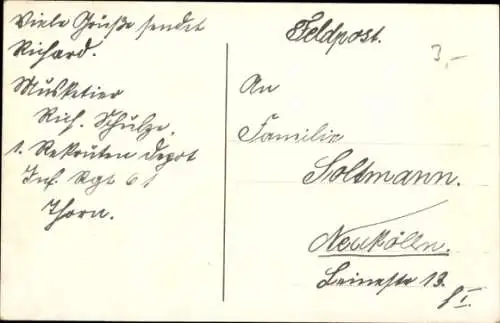 Viele Grüße sendet
Richard.
Musketier
Rich. Schulze,
1. Rekruten Depot
Inf. Rgt 61
Thorn.
Feldpost.
3,-
An
Familie
Soltmann.
Neukölln.
Leinestr 13.